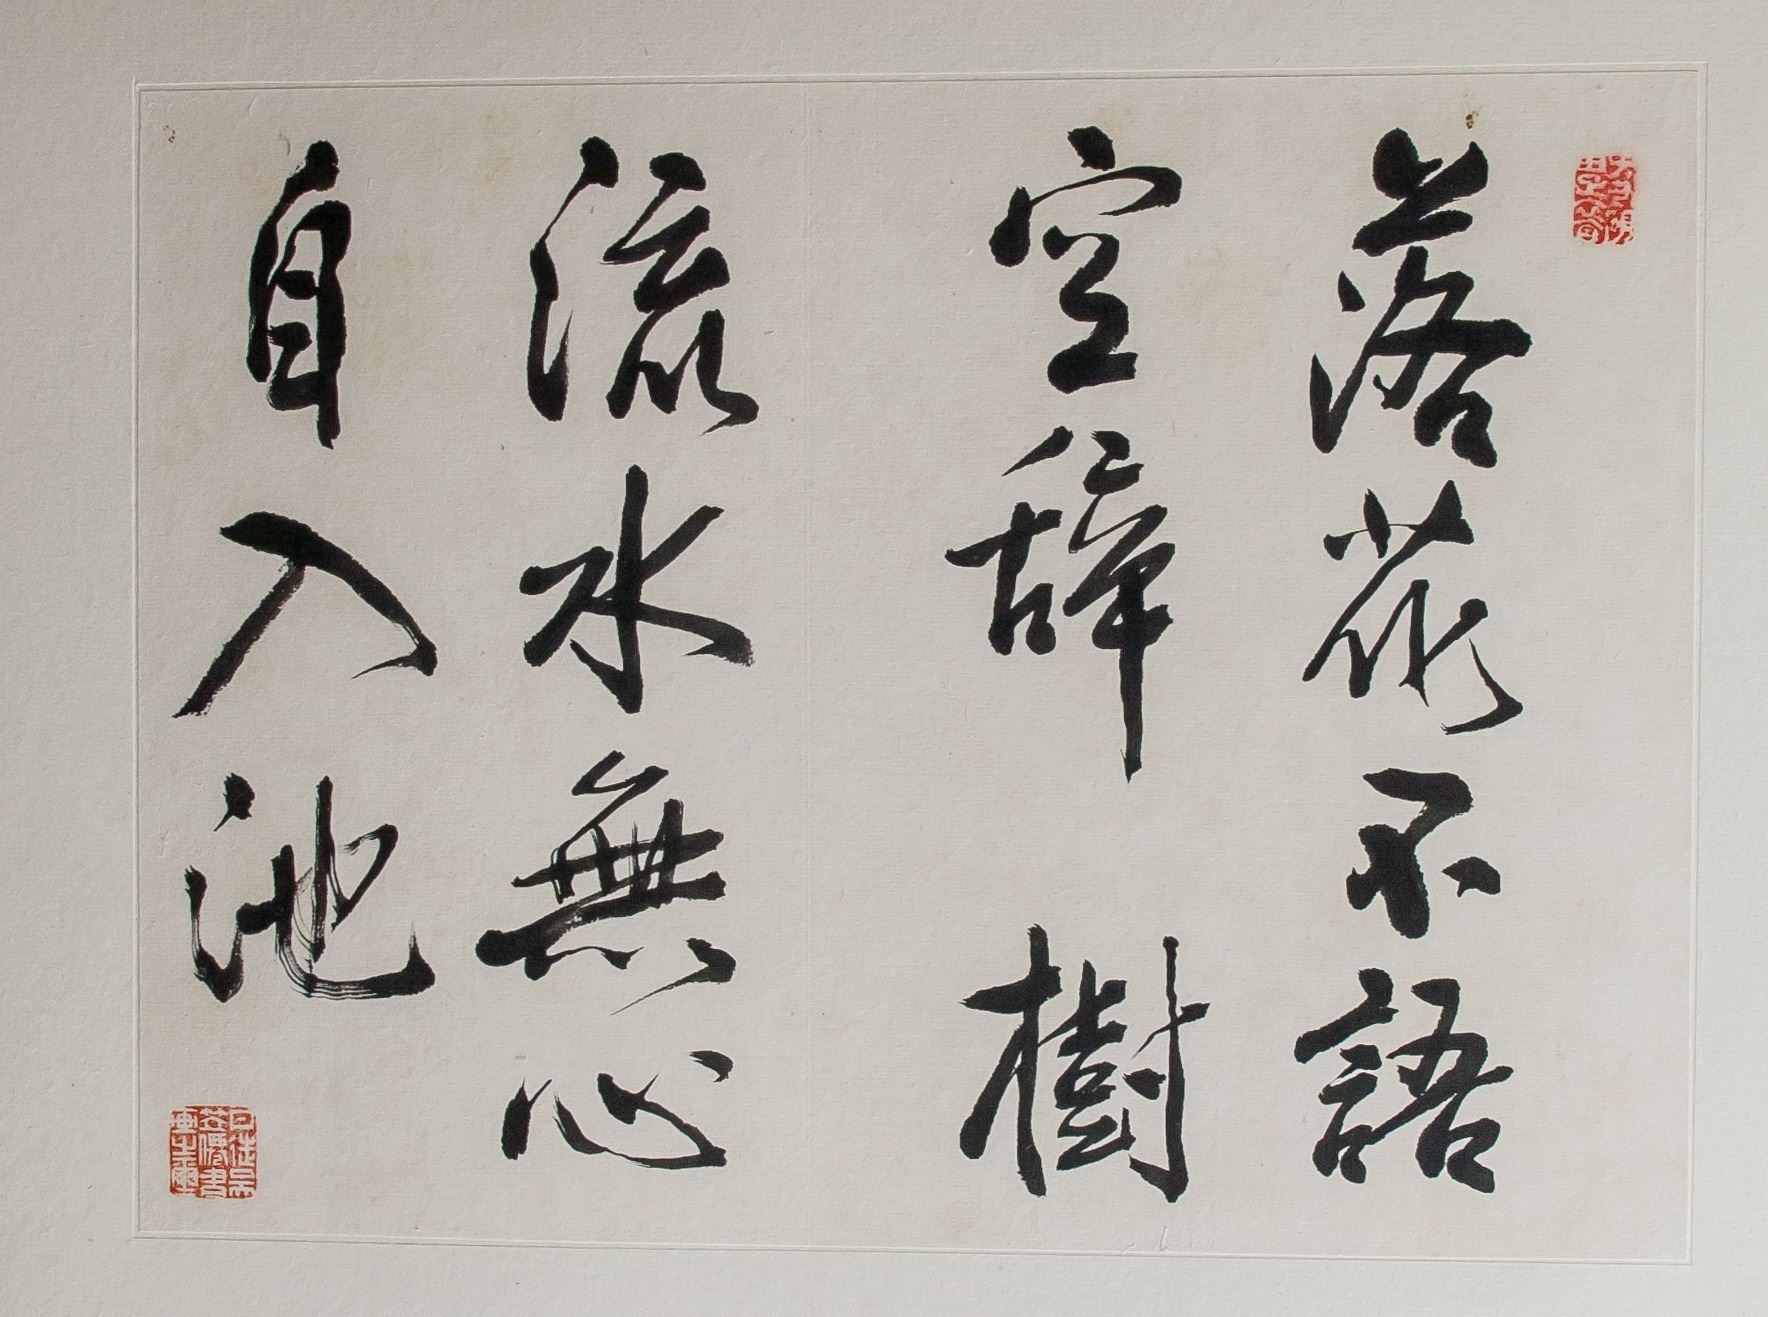 落花不語
空辞樹
流水無心
自入池